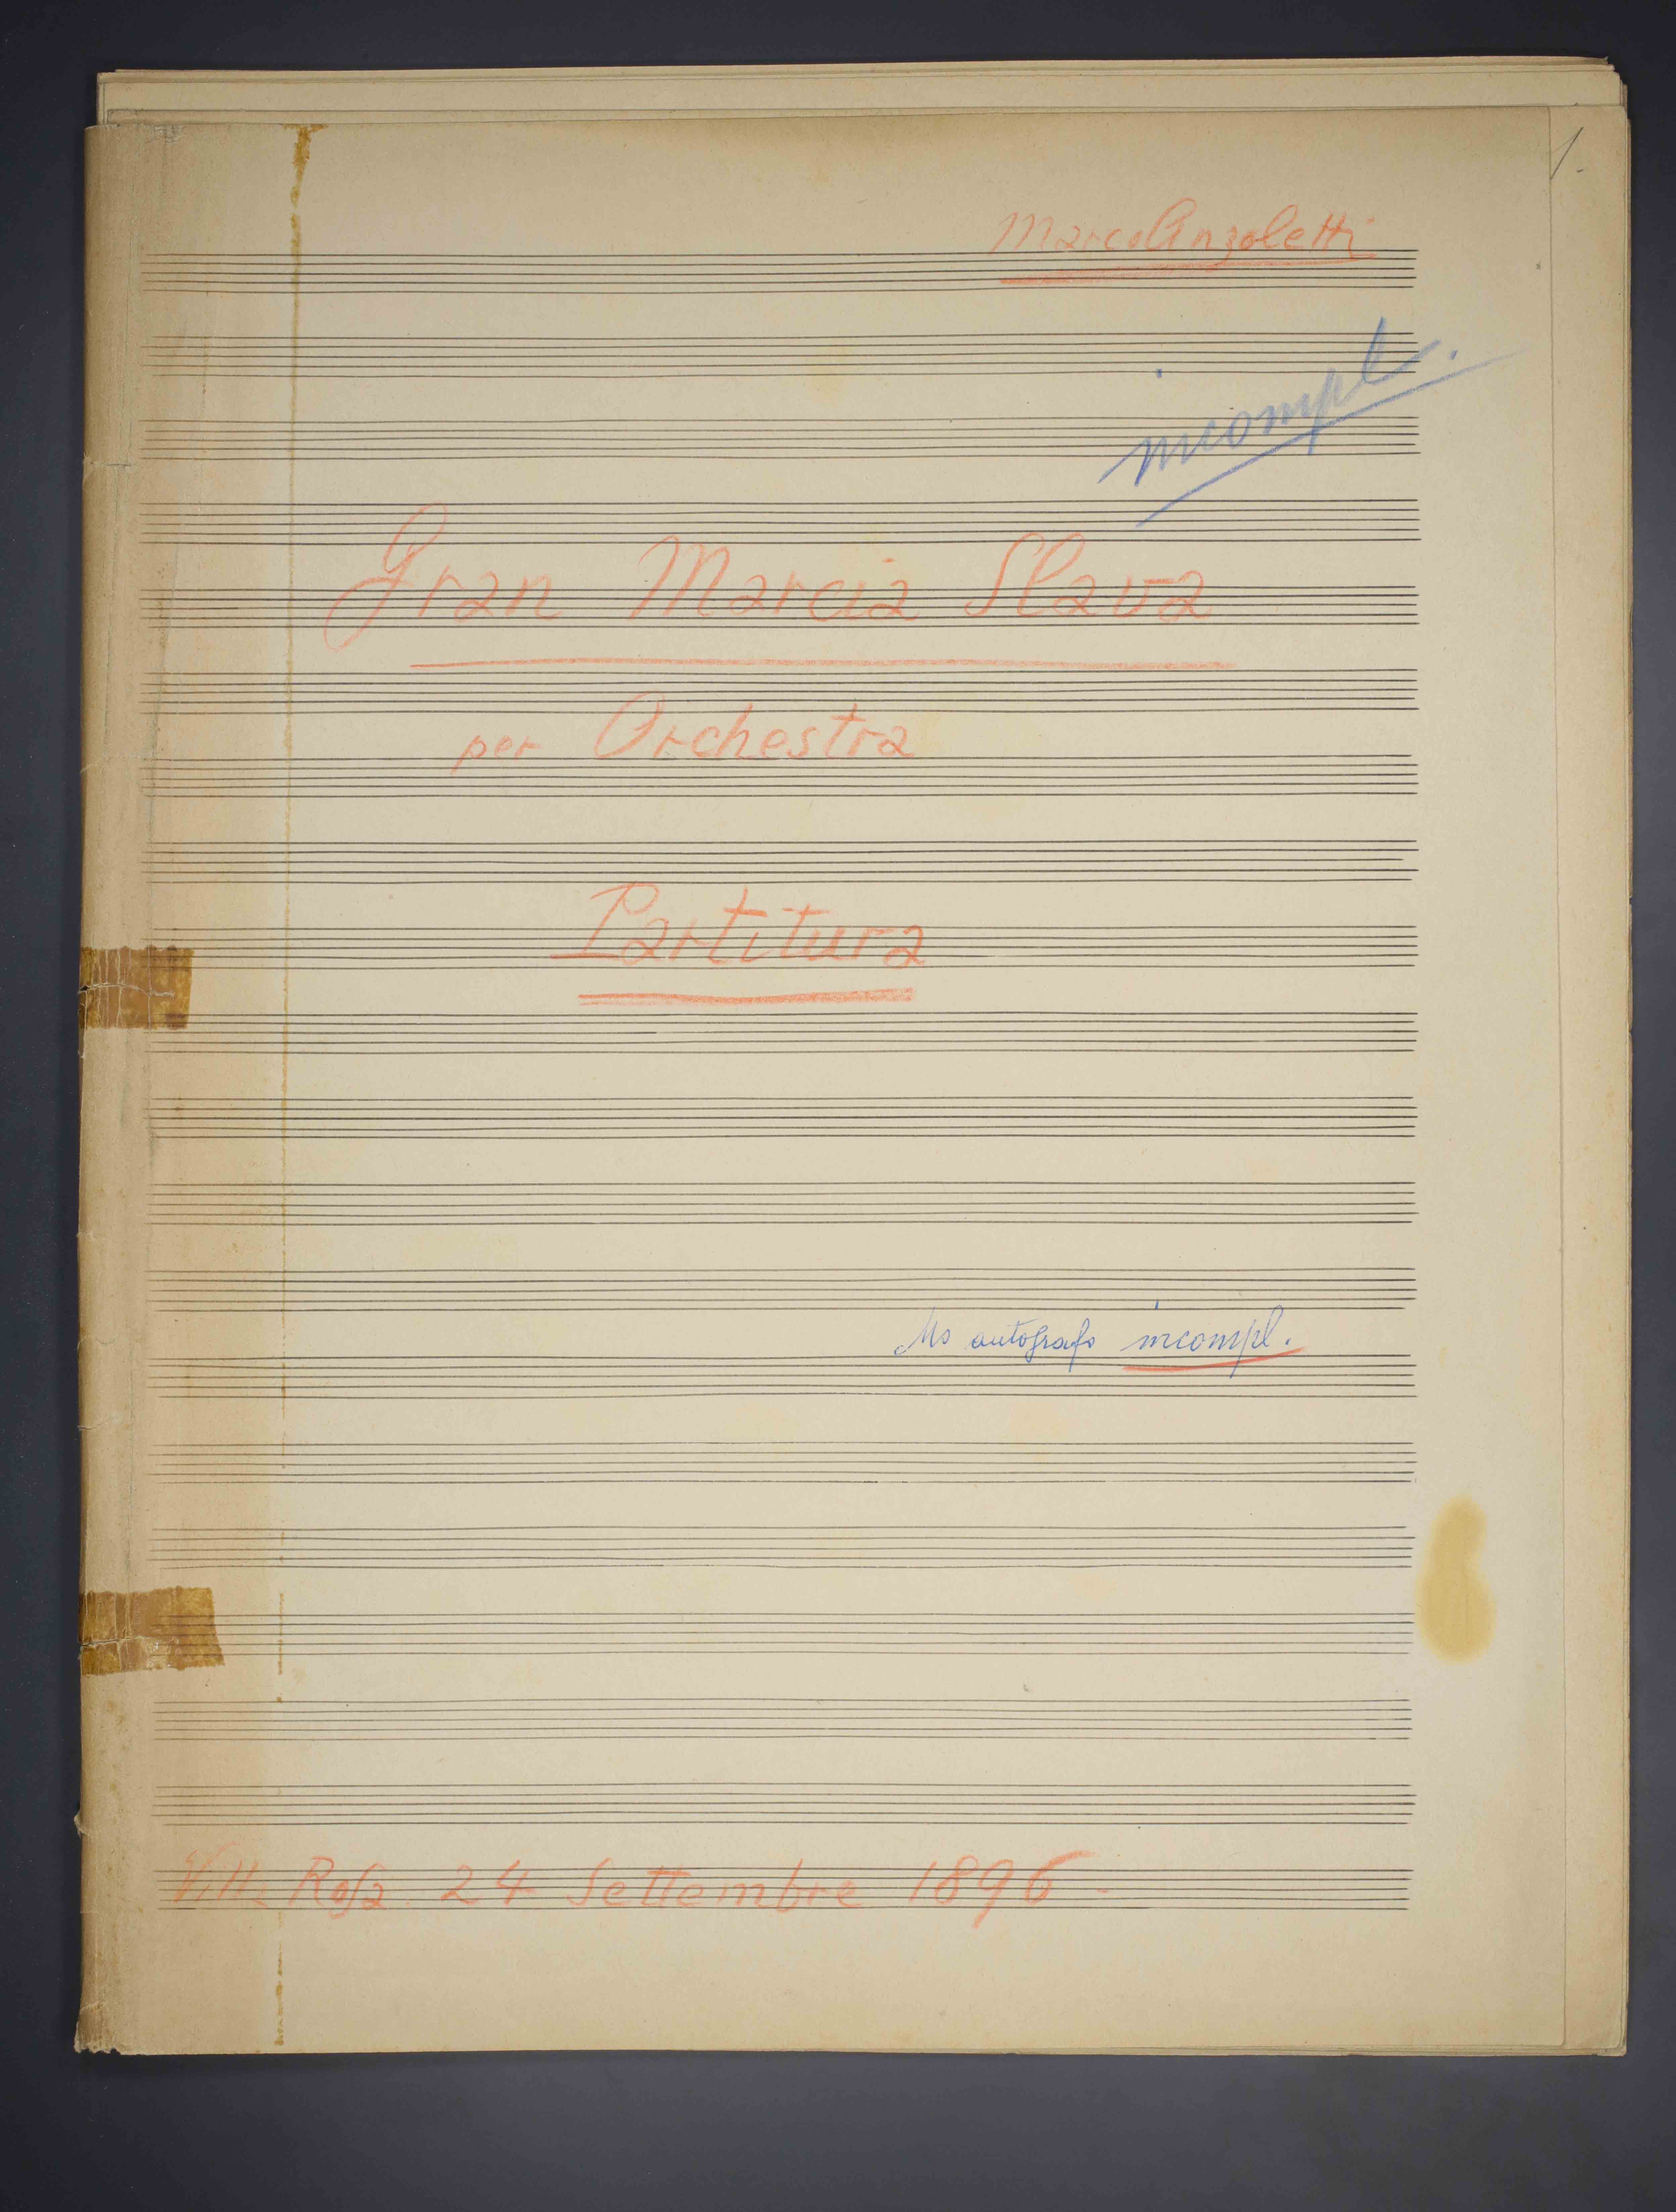 1.
Marco Anzoletti
incompl.
Gran Marcia Slava
per Orchestra
Partitura
Ms autografo incompl.
Villa Rosa. 24 Settembre 1896 -